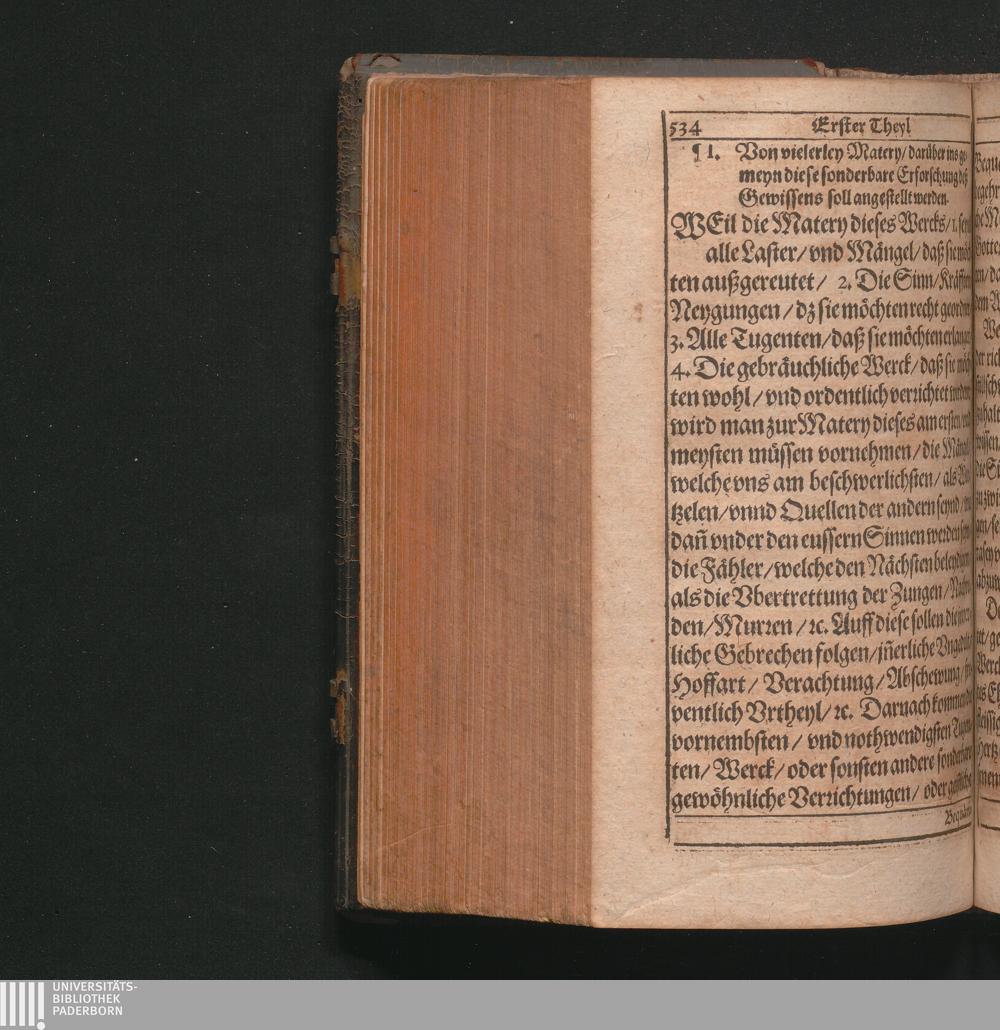 534 Erster Theyl
¶ 1. Von vielerley Matery/ darüber ins ge-
meyn diese sonderbare Erforschung deß
Gewissens soll angestellt werden.
WEil die Matery dieses Wercks/ 1. seyn
alle Laster/ vnd Mängel/ daß sie möch
ten außgereutet/ 2. Die Sinn/ Kräfften
Neygungen/ dz sie möchten recht geordnet
3. Alle Tugenten/ daß sie möchten erlangt
4. Die gebräuchliche Werck/ daß sie möch
ten wohl/ vnd ordentlich verrichtet werden
wird man zur Matery dieses am ersten vnd
meysten müssen vornehmen/ die Mängel
welche vns am beschwerlichsten/ als Wu
tzelen/ vnnd Quellen der andern seynd/
dañ vnder den eussern Sinnen werden seyn
die Fähler/ welche den Nächsten beleydigen
als die Vbertrettung der Zungen/
den/ Murren/ ꝛc. Auff diese sollen die
liche Gebrechen folgen/ iñerliche Vngedult
Hoffart/ Verachtung/ Abschewung/
ventlich Vrtheyl/ ꝛc. Darnach kommen die
vornembsten/ vnd nothwendigsten Tugen
ten/ Werck/ oder sonsten andere sonderbare
gewöhnliche Verrichtungen/ oder geistliche
UNIVERSITÄTS-
BIBLIOTHEK
PADERBORN